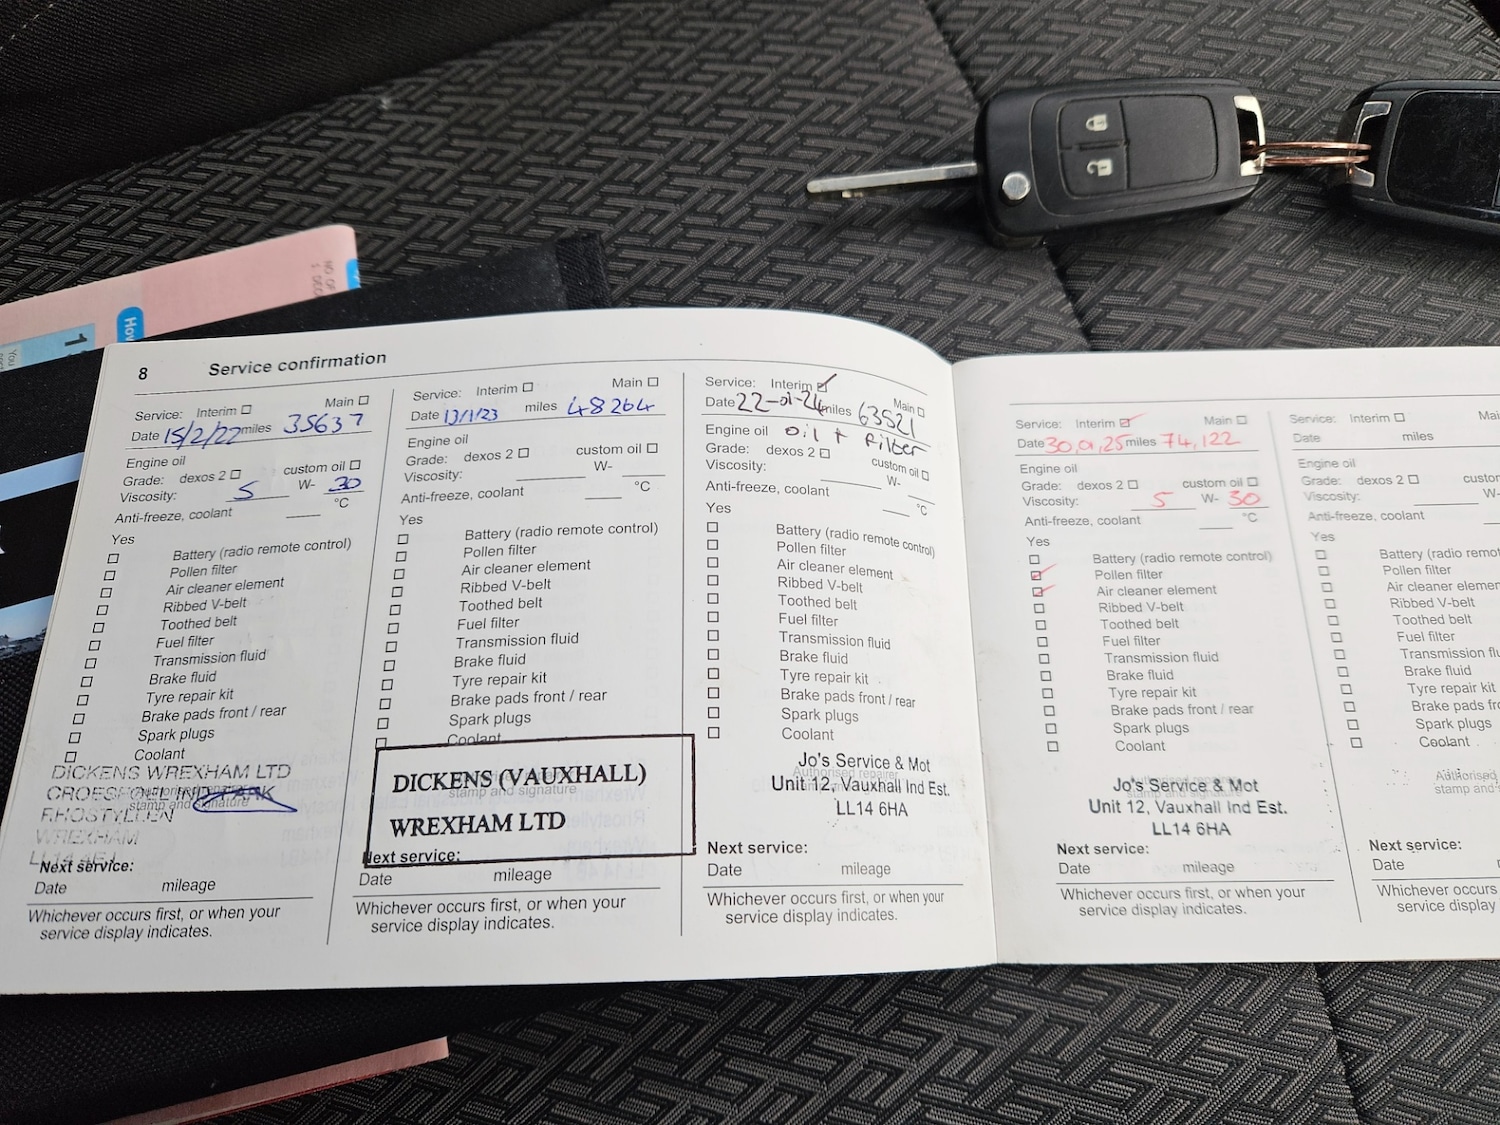 8 Service confirmation
Service: Interim ☐ Main ☐
Date 15/2/22 miles 35637
Engine oil
Grade: dexos 2 ☐ custom oil ☐
Viscosity: 5 W- 30
Anti-freeze, coolant ____ °C
Yes
☐ Battery (radio remote control)
☐ Pollen filter
☐ Air cleaner element
☐ Ribbed V-belt
☐ Toothed belt
☐ Fuel filter
☐ Transmission fluid
☐ Brake fluid
☐ Tyre repair kit
☐ Brake pads front / rear
☐ Spark plugs
☐ Coolant
DICKENS WREXHAM LTD
stamp and signature
RHOSTYLLEN
WREXHAM
Next service:
Date mileage
Whichever occurs first, or when your
service display indicates.
Service: Interim ☐ Main ☐
Date 13/1/23 miles 48264
Engine oil
Grade: dexos 2 ☐ custom oil ☐
Viscosity: ____ W- ____
Anti-freeze, coolant ____ °C
Yes
☐ Battery (radio remote control)
☐ Pollen filter
☐ Air cleaner element
☐ Ribbed V-belt
☐ Toothed belt
☐ Fuel filter
☐ Transmission fluid
☐ Brake fluid
☐ Tyre repair kit
☐ Brake pads front / rear
☐ Spark plugs
☐ Coolant
DICKENS (VAUXHALL)
stamp and signature
WREXHAM LTD
Next service:
Date mileage
Whichever occurs first, or when your
service display indicates.
Service: Interim ☑ Main ☐
Date 22-01-24 miles 63521
Engine oil oil + filter
Grade: dexos 2 ☐ custom oil ☐
Viscosity: ____ W- ____
Anti-freeze, coolant ____ °C
Yes
☐ Battery (radio remote control)
☐ Pollen filter
☐ Air cleaner element
☐ Ribbed V-belt
☐ Toothed belt
☐ Fuel filter
☐ Transmission fluid
☐ Brake fluid
☐ Tyre repair kit
☐ Brake pads front / rear
☐ Spark plugs
☐ Coolant
Jo's Service & Mot
Authorised repairer
Unit 12, Vauxhall Ind Est.
LL14 6HA
Next service:
Date mileage
Whichever occurs first, or when your
service display indicates.
Service: Interim ☑ Main ☐
Date 30,01,25 miles 74,122
Engine oil
Grade: dexos 2 ☐ custom oil ☐
Viscosity: 5 W- 30
Anti-freeze, coolant ____ °C
Yes
☐ Battery (radio remote control)
☑ Pollen filter
☑ Air cleaner element
☐ Ribbed V-belt
☐ Toothed belt
☐ Fuel filter
☐ Transmission fluid
☐ Brake fluid
☐ Tyre repair kit
☐ Brake pads front / rear
☐ Spark plugs
☐ Coolant
Jo's Service & Mot
Unit 12, Vauxhall Ind Est.
LL14 6HA
Next service:
Date mileage
Whichever occurs first, or when your
service display indicates.
Service: Interim ☐ Mai
Date miles
Engine oil
Grade: dexos 2 ☐ custo
Viscosity: ____ W-
Anti-freeze, coolant
Yes
☐ Battery (radio remot
☐ Pollen filter
☐ Air cleaner elemen
☐ Ribbed V-belt
☐ Toothed belt
☐ Fuel filter
☐ Transmission flu
☐ Brake fluid
☐ Tyre repair kit
☐ Brake pads fro
☐ Spark plugs
☐ Coolant
Authorised
stamp and s
Next service:
Date
Whichever occurs
service display